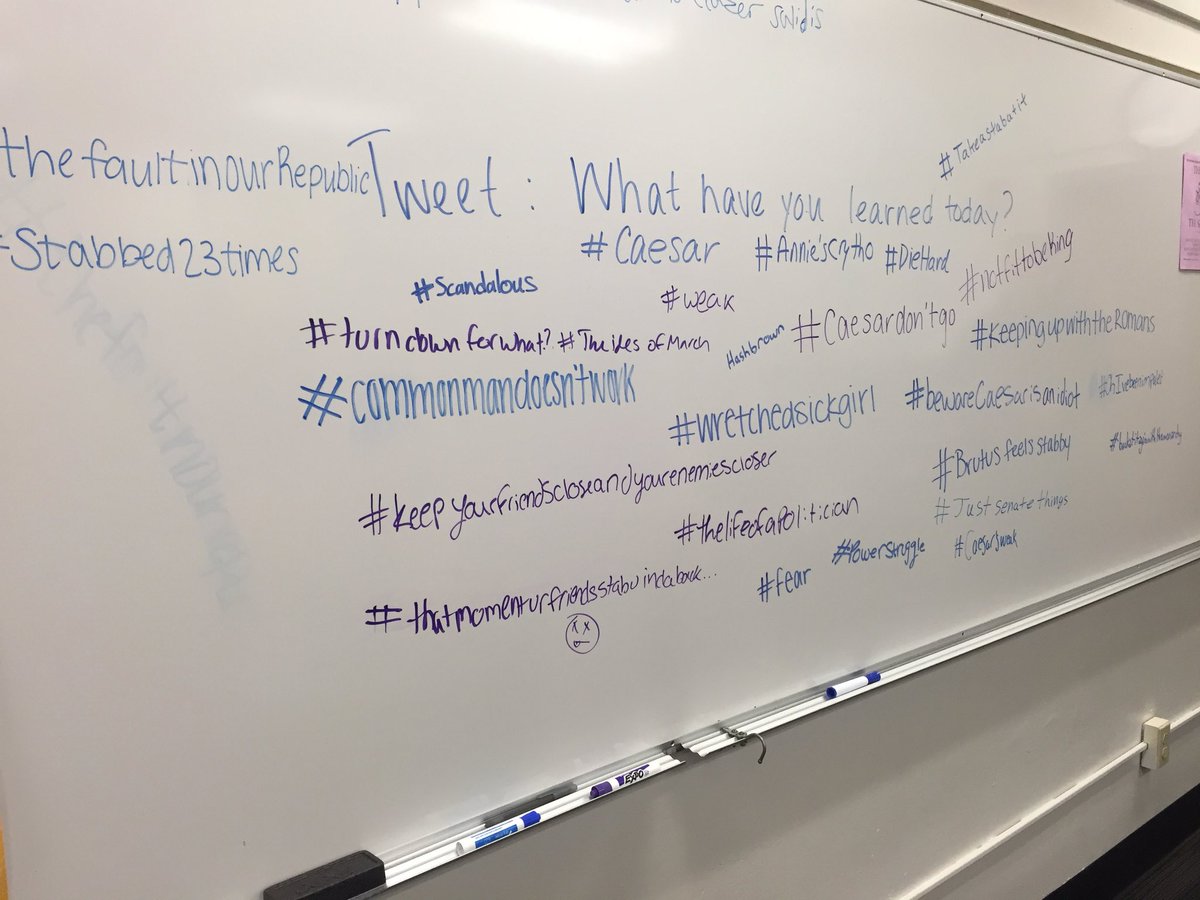 #Takeastabatit
thefaultinourRepublic
Tweet: What have you learned today?
Stabbed23times
#Caesar #Annie'scrytho #DieHard
#notfittobeking
#Scandalous
#weak
#turndownforwhat? #The ides of March
Hashbrown
#Caesardon'tgo
#KeepingupwiththeRomans
#commonmandoesn'twork
#wretchedsickgirl
#bewareCaesarisanidiot
#Brutus feels stabby
#keepyourfriendscloseandyourenemiescloser
#thelifeofapolitician
#Just senate things
#Powerstruggle
#fear
#thatmomenturfriendsstabuindaback...
EXPO